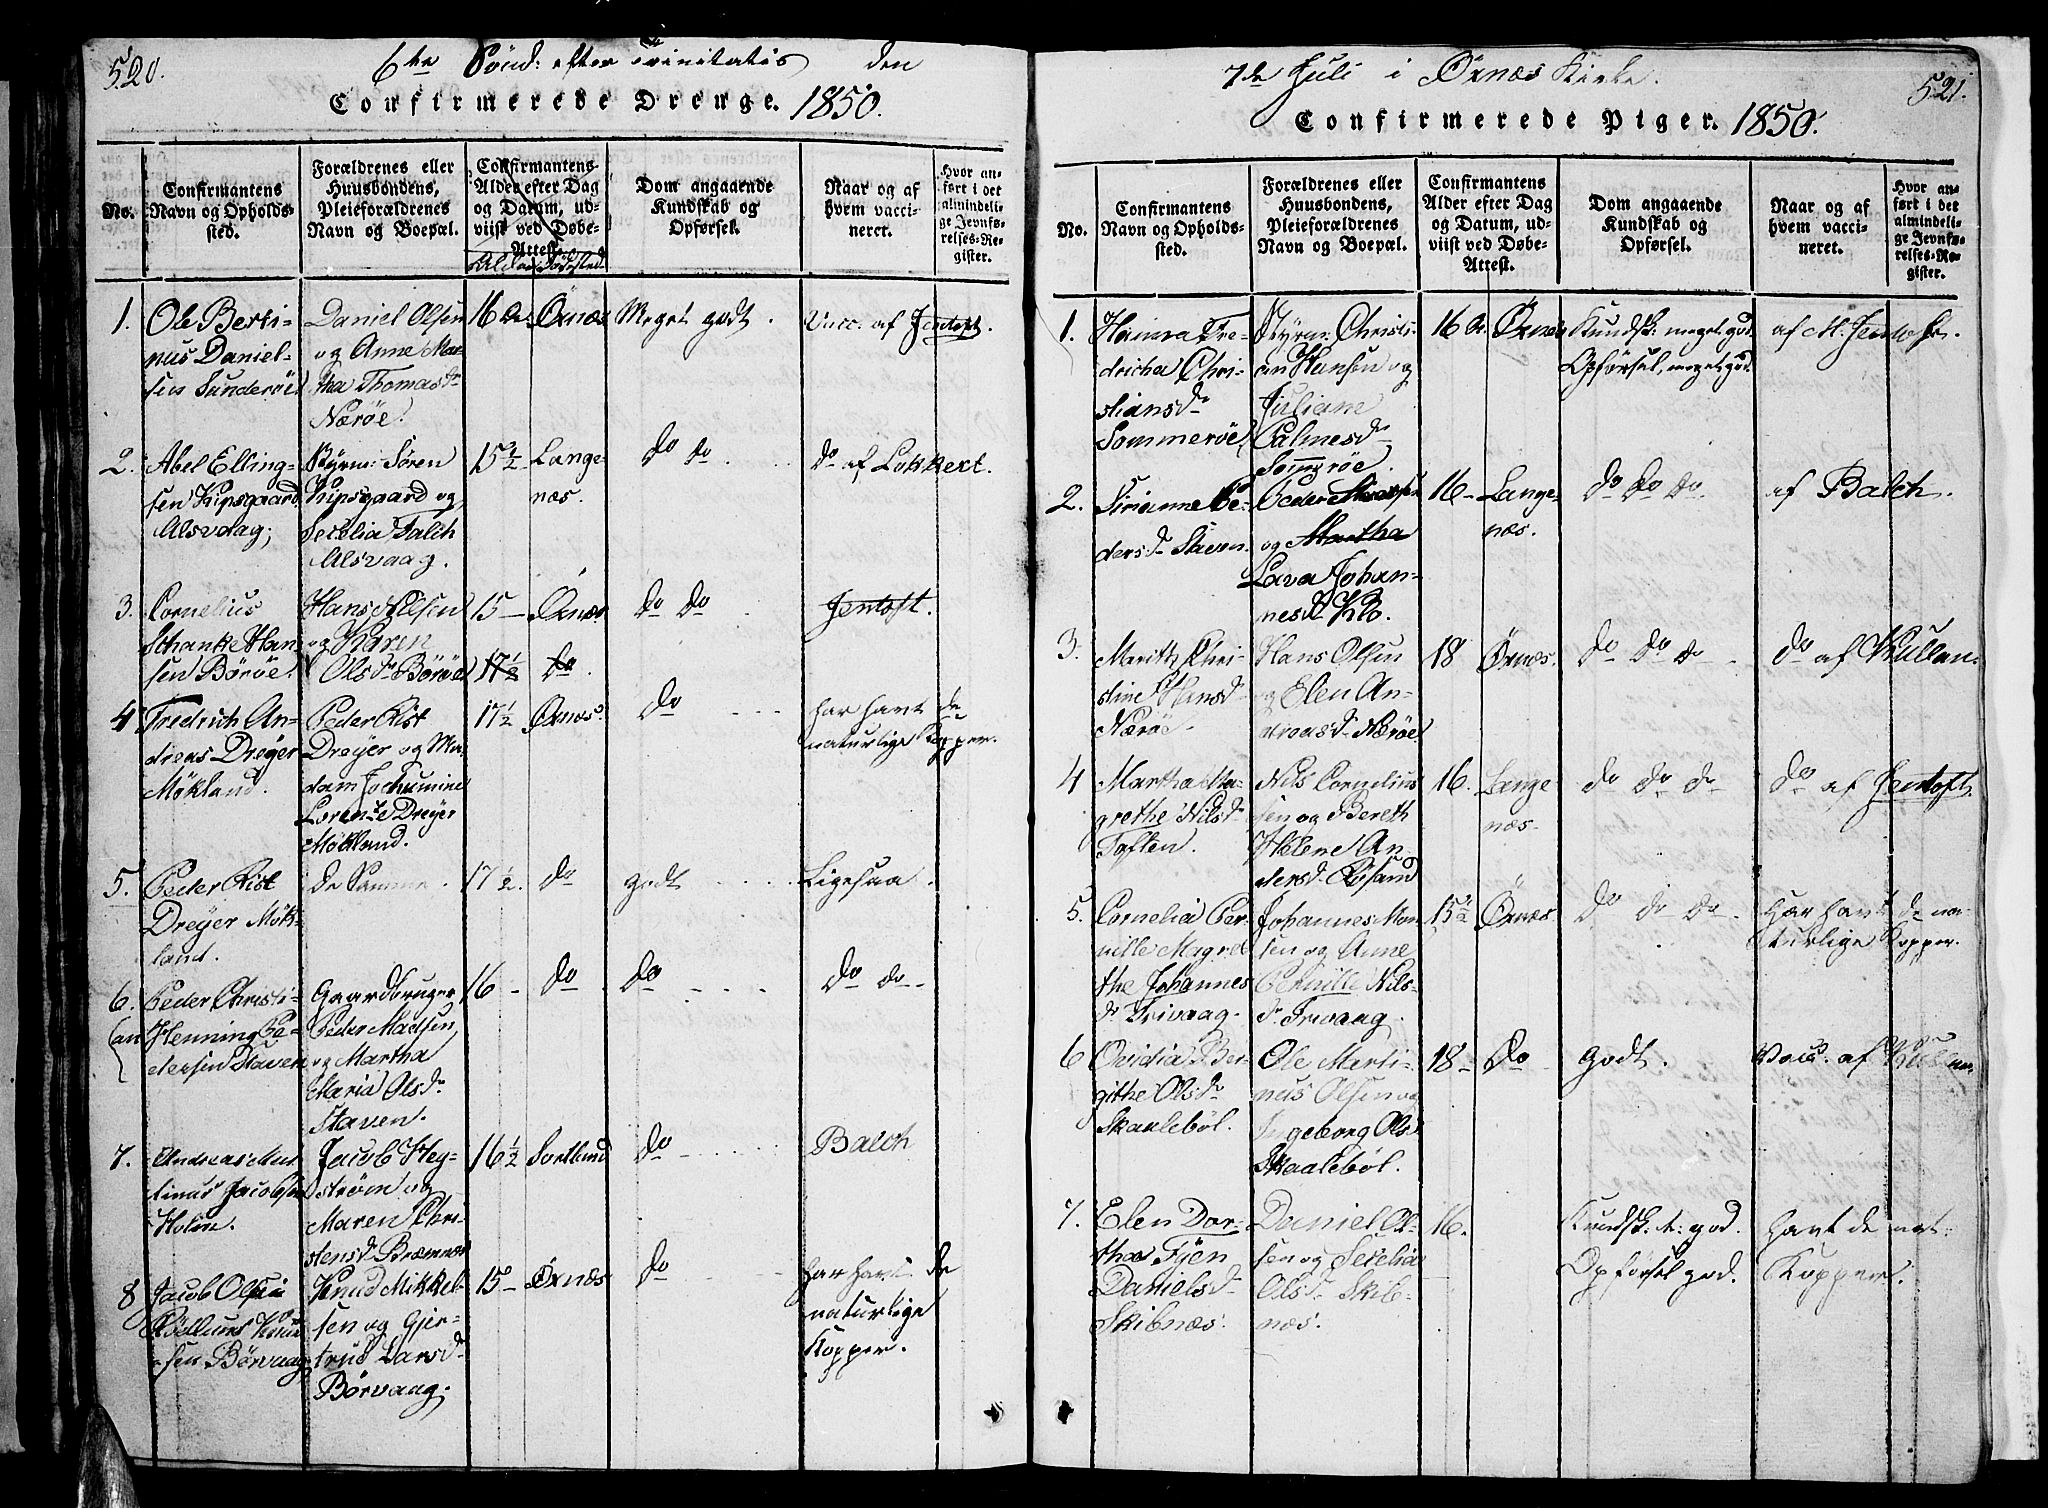 520.
6te Sönd: efter Trinitatis den
Confirmerede Drenge. 1850.
No.
Confirmantens
Navn og Opholds-
sted.
Forældrenes eller
Huusbondens,
Pleieforældrenes
Navn og Boepæl.
Confirmantens
Alder efter Dag
og Datum, ud-
viist ved Døbe-
Attest.
Alder Födested
Dom angaaende
Kundskab og
Opførsel.
Naar og af
hvem vacci-
neret.
Hvor an-
ført i det
almindeli-
ge Jevnfø-
relses-Re-
gister.
1. Ole Berti-
nus Daniel-
sen Sunderöe
Daniel Olsen
og Anne Mar-
tha Thomasdr
Næröe.
16 Ar Örnæs Meget godt. Vacc. af Jentoft.
2. Abel Elling-
sen Kipsgaard
Alsvaag;
Styrm: Sören
Kipsgaard og
Secelia Falch
Alsvaag.
15 1/2 Lange-
næs.
do do do af Lokkert.
3. Cornelius
Schanke Han-
sen Böröe.
Hans Nilsen
og Karen
Olsdr Böröe
15 - Örnæs do do Jentoft.
17 1/2 do.
4 Fredrich An-
dreas Dreyer
Mökland.
Peder Rist
Dreyer og Ma-
dam Jochumine
Lorentze Dreyer
Mökland.
17 1/2 Örnæs. do
har havt de
naturlige Kopper.
5. Peder Rist
Dreyer Mök-
land.
De Samme. 17 1/2. do godt Ligesaa.
6. Peder Christi-
(an Henning Pe-
dersen Staven
Gaardbruger
Peder Madsen
og Martha
Maria Olsdr
Staven.
16 - do do do do
7. Andreas Mar-
tinus Jacobsen
Holm.
Jacob Hey-
ström og
Maren Chri-
stensdr Bremnæs
16 1/2 Sortland do Balch
8 Jacob Olsen
Knud-
sen Börvaag
Knud Mikkel-
sen og Gjer-
trud Larsdr
Börvaag.
15 - Örnæs do
har havt de
naturlige
Kopper.
7de Juli i Örnæs Kirke.
521.
Confirmerede Piger. 1850.
No.
Confirmantens
Navn og Opholds-
sted.
Forældrenes eller
Huusbondens,
Pleieforældrenes
Navn og Boepæl.
Confirmantens
Alder efter Dag
og Datum, ud-
viist ved Døbe-
Attest.
Dom angaaende
Kundskab og
Opførsel.
Naar og af
hvem vacci-
neret.
Hvor an-
ført i det
almindeli-
ge Jevnfø-
relses-Re-
gister.
1. Hanna Fre-
dricha Chri-
stiansdr
Sommeröe
Styrm: Christi-
an Hansen og
Juliane
Calmesdr
Somröe.
16 Ar Örnæs
Kundsk: meget god
Opförsel, meget god
af M. Jentoft.
2. Sirianne Pe-
dersdr Staven.
Peder
og Martha
Lava Johan-
nesdr Klo.
16 - Lange-
næs.
do do do af Balch.
3. Marith Chri-
stine Hansdr
Næröe.
Hans Olsen
og Elen An-
dreasdr Næröe.
18 Örnæs. do do do do af Kullan.
4 Martha Ma-
grethe Nilsdr
Toften.
Nils Cornelius
sen og Bereth
Helene An-
dersdr Röesand
16. Lange
næs.
do do do do af Jentoft.
5. Cornelia Per-
nille Magre
the Johannes
dr Trivaag.
Johannes Mon-
sen og Anne
Pernille Nils-
dr Trivaag.
15 1/2 Örnæs do do do
Har havt de na-
turlige Kopper.
6 Ovidia Ber-
githe Olsdr
Skaaleböl.
Ole Marti-
nus Olsen og
Ingeborg Olsdr
Skaaleböl.
18 - do godt. Vacc. af Kullan.
7. Elen Dor-
thea Fyen
Danielsdr
Skibnæs.
Daniel Ol-
sen og Secelia
Olsdr Skib-
næs.
16.
Kundsk: t: god.
Opförsel god.
havt de nat:
Kopper.